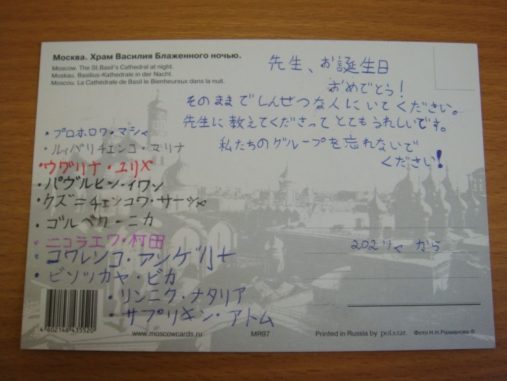 Москва. Храм Василия Блаженного ночью.
Moscow. The St.Basil's Cathedral at night.
Moskau. Basilius-Kathedrale in der Nacht.
Moscou. La Cathédrale de Basil le Bienheureux dans la nuit.
先生、お誕生日
おめでとう!
そのままでしんせつな人にいてください。
先生に教えてくださってとてもうれしいです。
私たちのグループを忘れないで
ください!
・プロホロワ・マシャ
・ルィバリチェンコ・マリナ
・ウグリナ・ユリヤ
・パヴルヒン・イワン
・クズニチェンコワ・サーシャ
・ゴルベク・ニカ
・ニコラエワ・村田
・コワレンコ・アンゲリナ
・ビソツカヤ・ビカ
・リンニク・ナタリア
・サプリキン・アトム
から
4602146435520
www.moscowcards.ru
MR97
Printed in Russia by